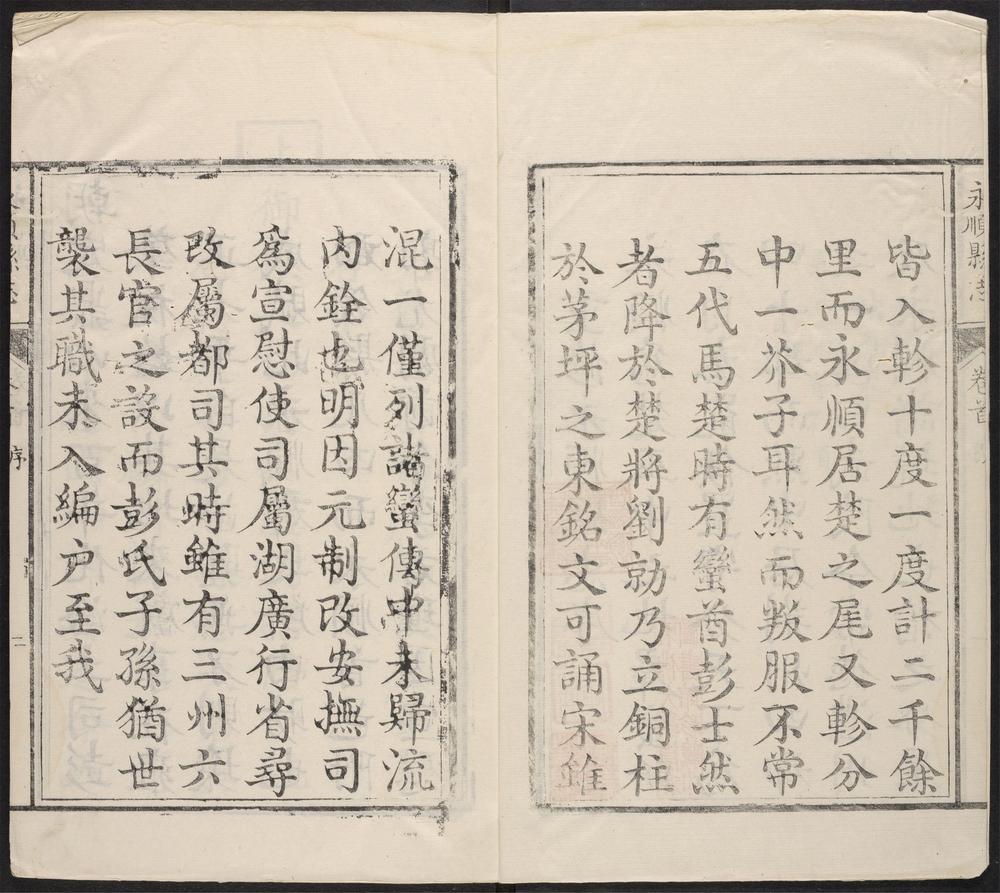 永順縣志 卷首
皆入軫十度一度計二千餘
里而永順居楚之尾又軫分
中一芥子耳然而叛服不常
五代馬楚時有蠻酋彭士然
者降於楚將劉勍乃立銅柱
於茅坪之東銘文可誦宋雖
混一僅列諸蠻傳中未歸流
內銓也明因元制改安撫司
為宣慰使司屬湖廣行省尋
改屬都司其時雖有三州六
長官之設而彭氏子孫猶世
襲其職未入編户至我
序 二